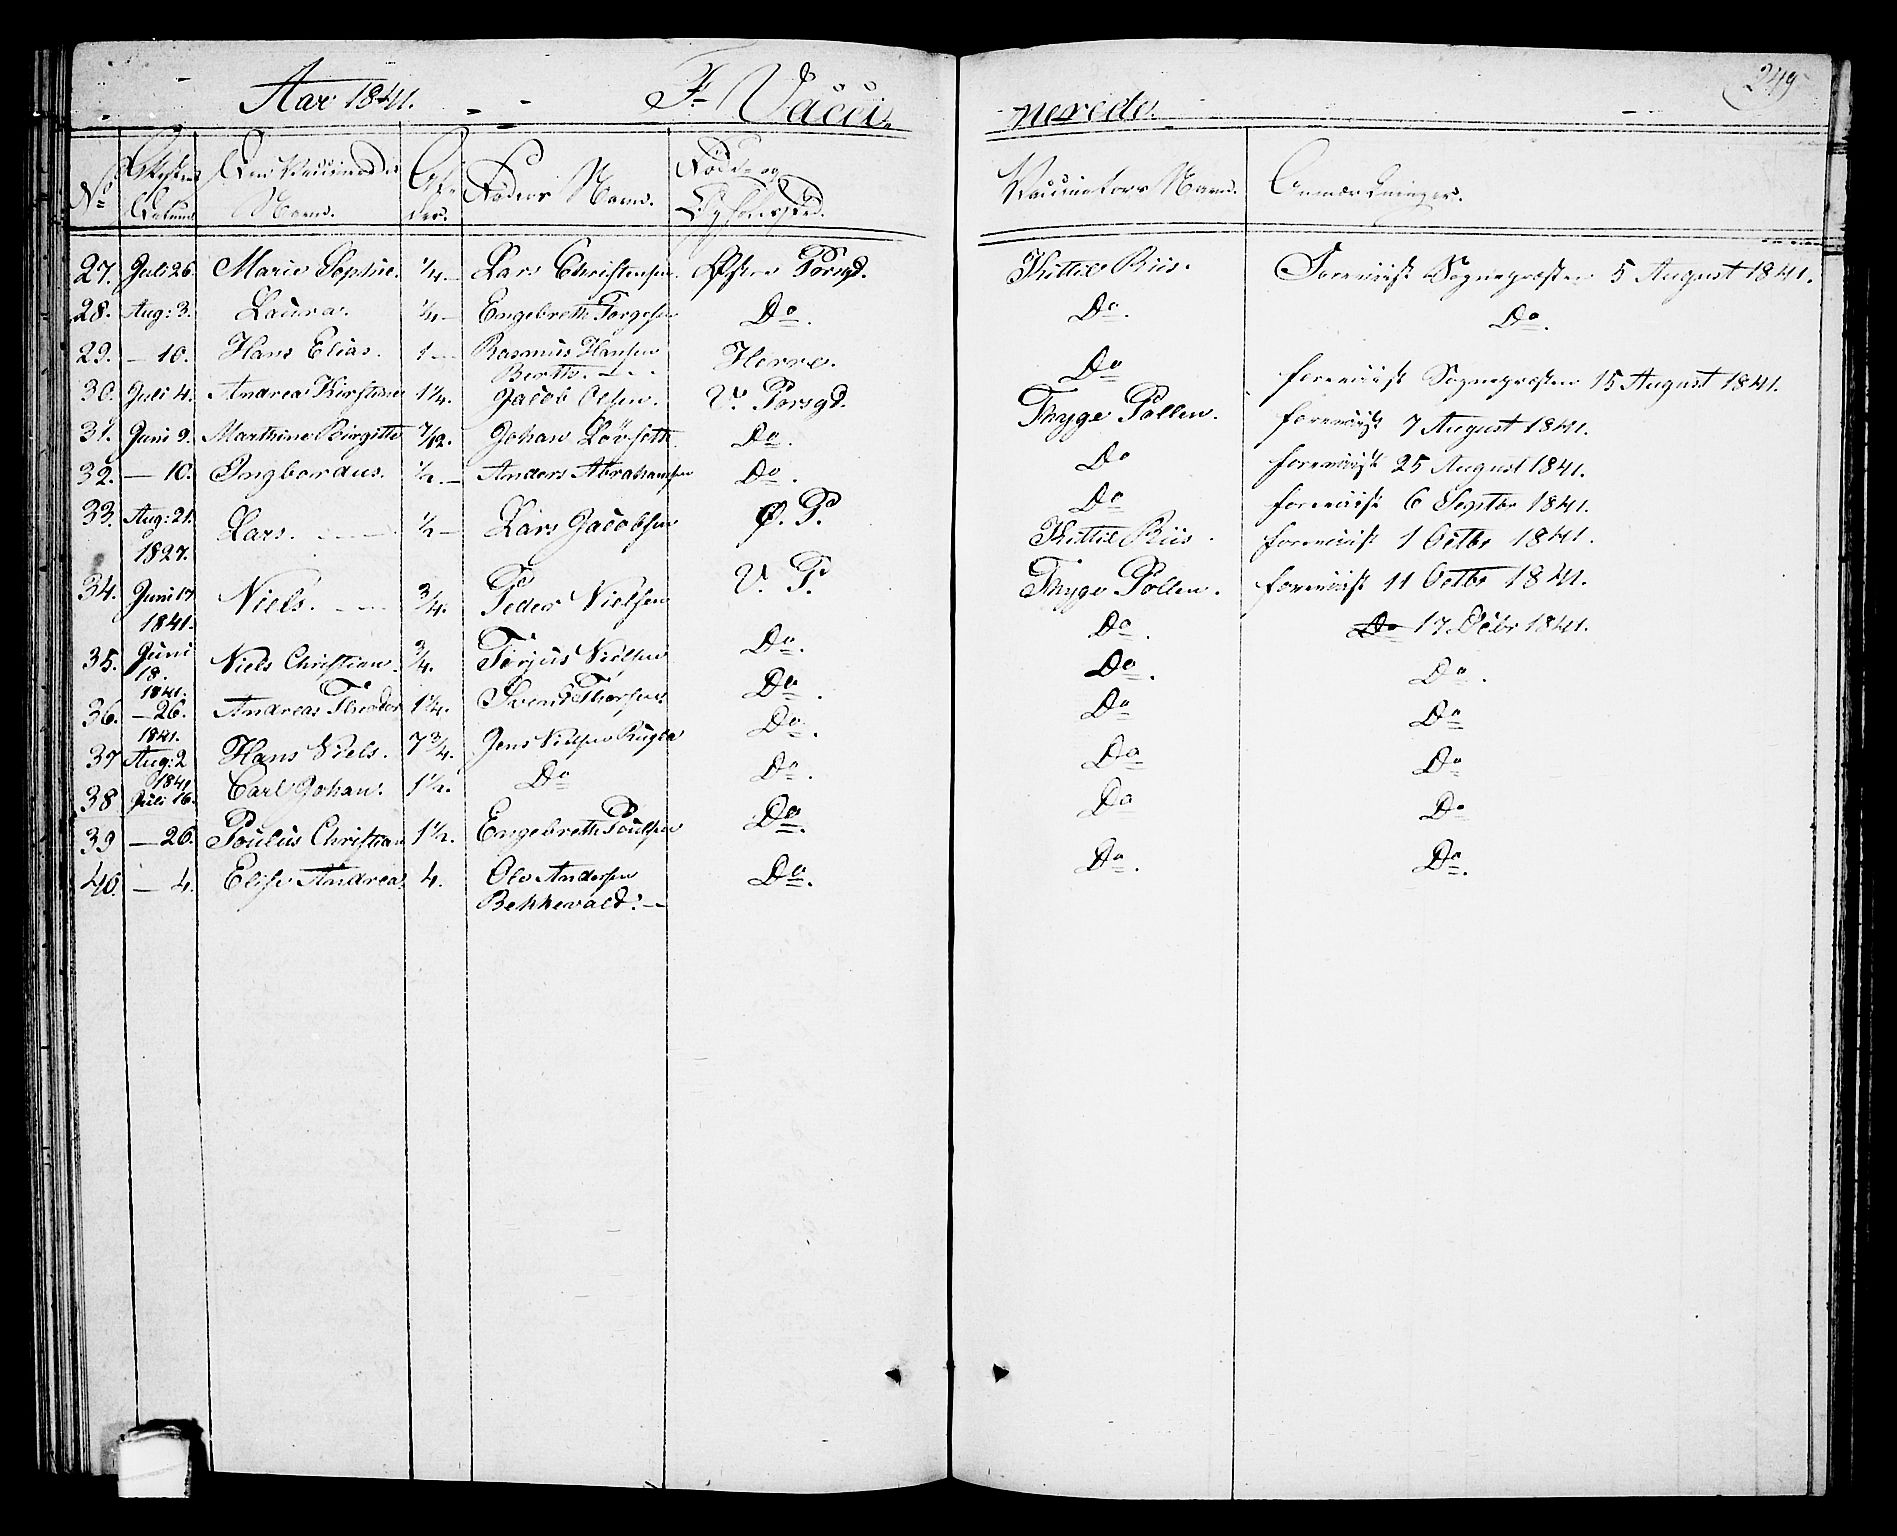 249
Aar 1841. F. Vacci-
nerede.
No Attestens Datum Den Vaccineredes Navn. Alder. Fadrens Navn. Føde- og Opholdssted. Vaccinators Navn. Anmærkninger.
27. Juli 26. Marie Sophie. 1/4 Lars Christensen. Østre Porsgd. Kittil Riis. Foreviist Sognepræsten 5 August 1841.
28. Aug: 3. Laura. 1/4 Engebreth Torgesen Do. Do. Do.
29. — 10. Hans Elias. 1 Rasmus Hansen Berth. Herre. Do foreviist Sognepræsten 15 August 1841.
30. Juli 4. Andrea Kirstine 1 1/4. Jacob Olsen. V. Porsgd. Thyge Pollen. foreviist 7 August 1841.
31. Juni 9. Marthine Birgitte 7/12. Johan Lövseth Do. Do foreviist 25 August 1841.
32. — 10. Ingbordus. 1/2 Anders Abrahamsen Do. Do foreviist 6 Septbr 1841.
33. Aug: 21. 1827. Lars. 1/2 Lars Jacobsen Ø. P. Kittil Riis. foreviist 1 Octbr 1841.
34. Juni 17 1841. Niels. 3/4. Peder Nielsen V. P. Thyge Pollen. foreviist 11 Octbr 1841.
35. Juni 18. 1841. Niels Christian. 3/4. Torjus Nielsen Do. Do. Do 17. Octbr 1841.
36. — 26. 1841. Andreas Theodor 1 1/4. Svend Thorsen. Do. Do. Do.
37 Aug: 2 1841 Hans Niels. 7 3/4. Jens Nielsen Rugla Do. Do Do
38 Juli 16. Carl Johan. 1 1/2. Do Do. Do Do
39 — 26. Poulus Christian 1 1/2. Engebreth Poulsen Do. Do Do
40. — 4. Elise Andrea 4. Ole Andersen Bekkevald. Do. Do. Do.